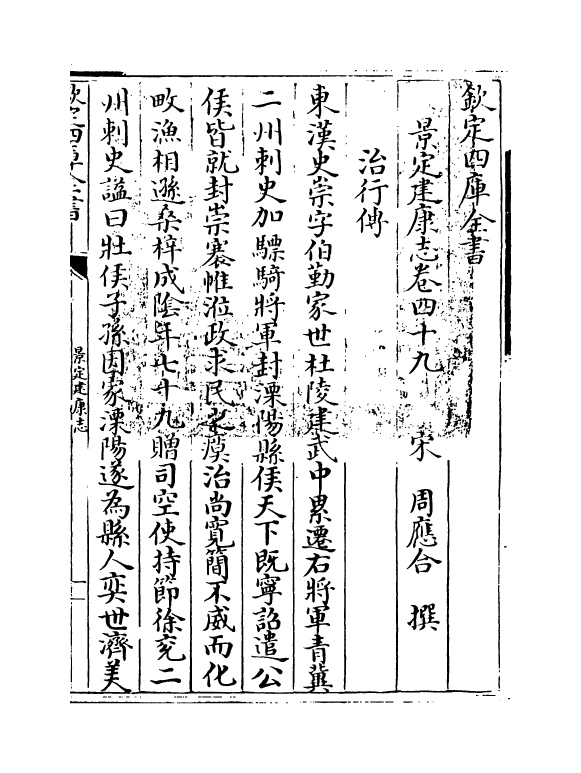 欽定四庫全書
景定建康志卷四十九
宋 周應合 撰
治行傳
東漢史崇字伯勤家世杜陵建武中累遷右將軍青冀
二州刺史加驃騎將軍封溧陽縣侯天下既寧詔遣公
侯皆就封崇褰帷涖政求民之瘼治尚寛簡不威而化
畋漁相遜桑梓成陰年七十九贈司空使持節徐兖二
州刺史諡曰壯侯子孫因家溧陽遂為縣人奕世濟美
欽定四庫全書
景定建康志